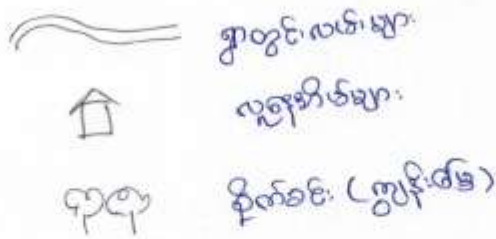 ရွာတွင်းလမ်းများ
လူနေအိမ်များ
စိုက်ခင်း (ကျွန်းမြေ)